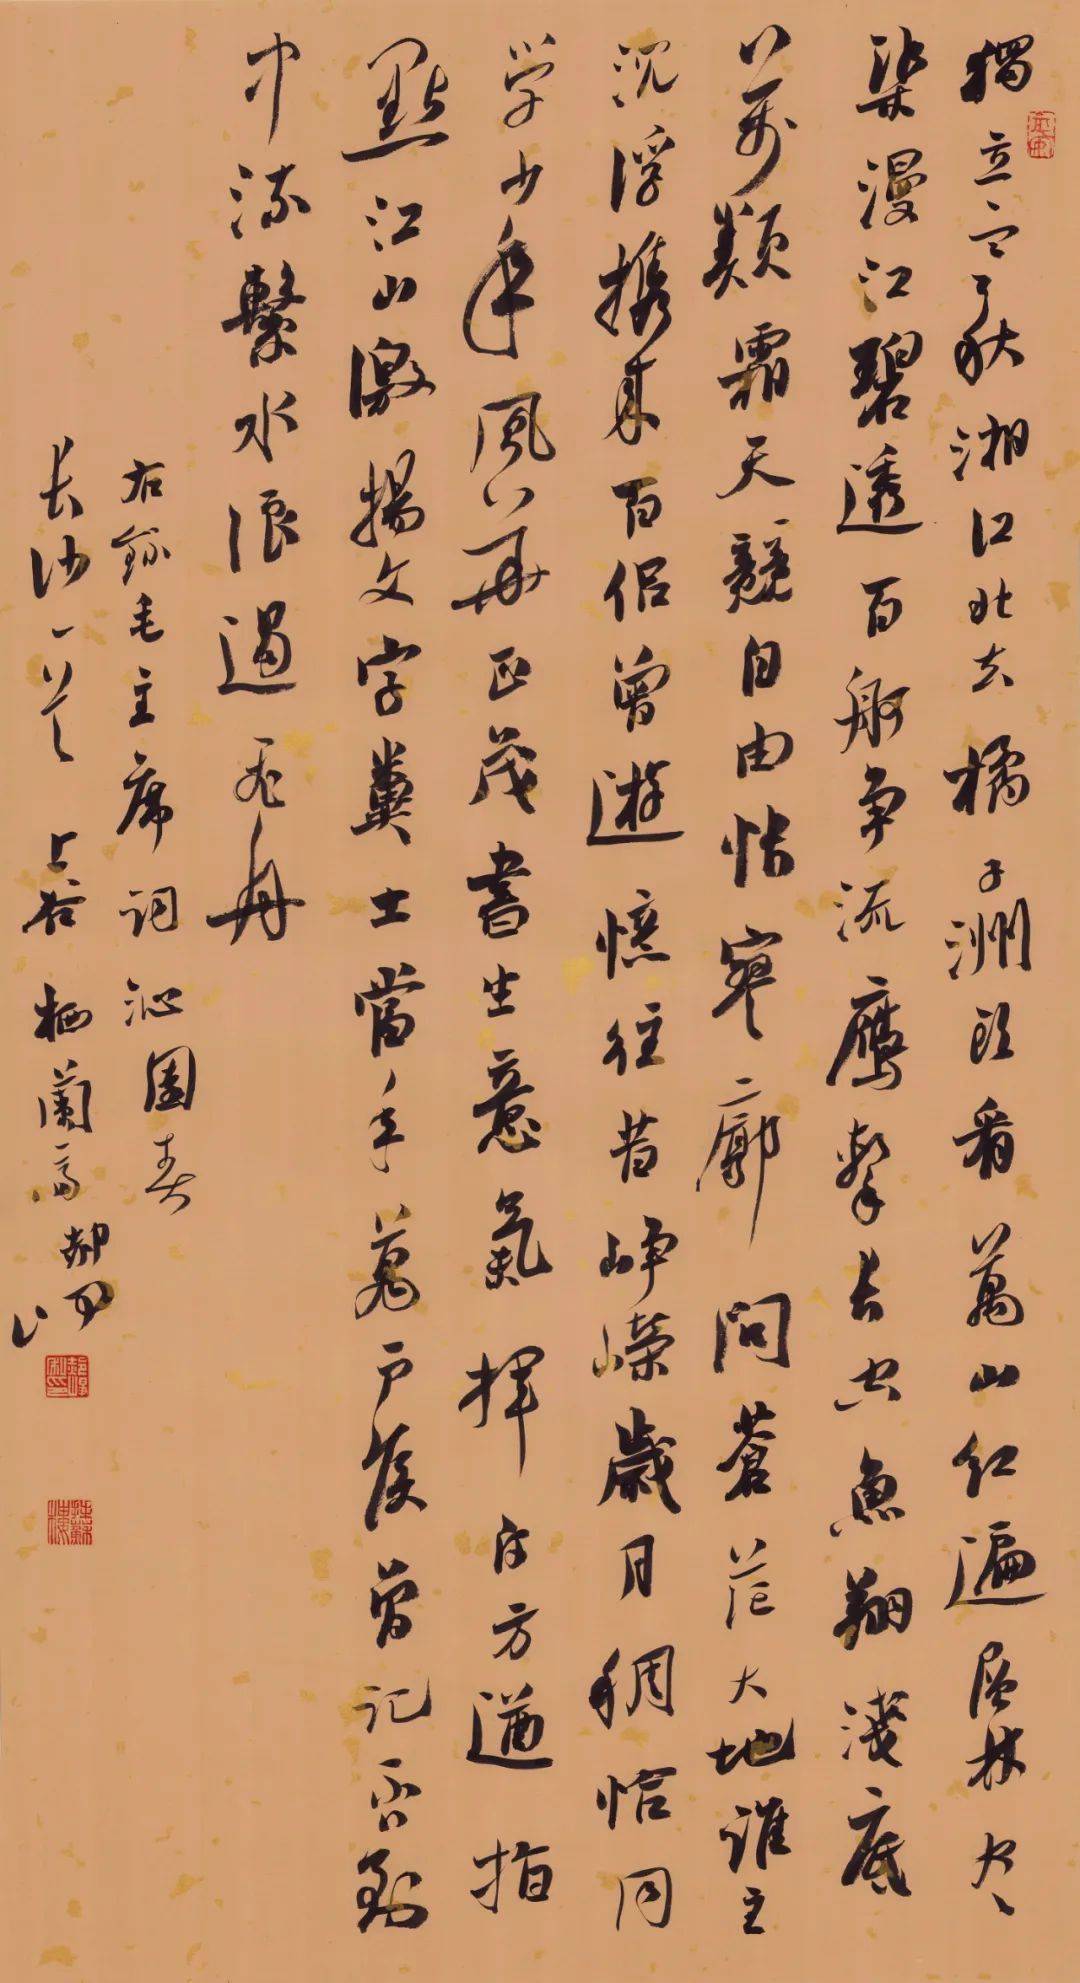 獨立寒秋湘江北去橘子洲頭看萬山紅遍層林尽
染漫江碧透百舸争流鷹擊長空魚翔淺底
萬類霜天競自由悵寥廓問蒼茫大地誰主
沉浮攜來百侶曾遊憶往昔崢嶸歲月稠恰同
学少年風華正茂書生意氣揮斥方遒指
點江山激揚文字糞土當年萬户侯曾記否到
中流擊水浪遏飛舟
右錄毛主席词沁園春
長沙一首 上谷栖蘭斋郝